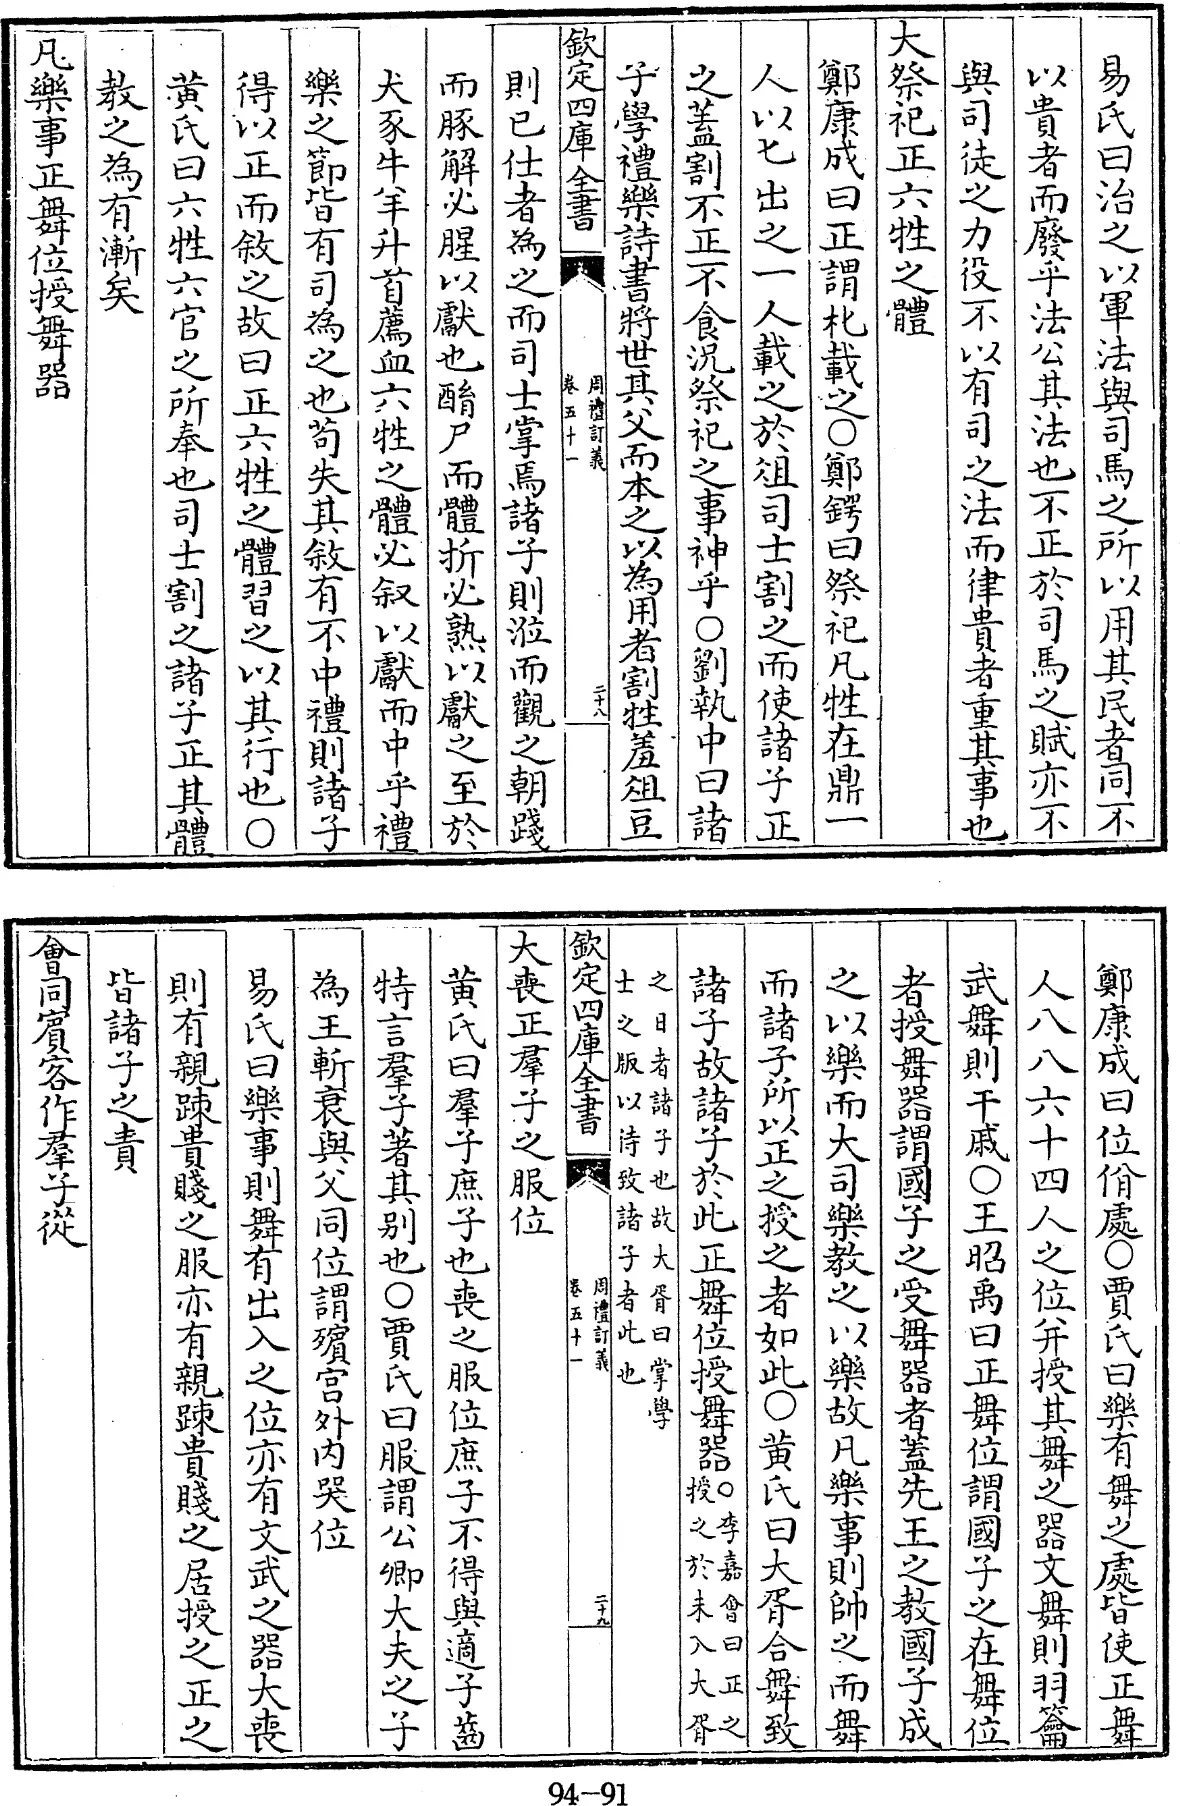 易氏曰治之以軍法與司馬之所以用其民者同不
以貴者而廢乎法公其法也不正於司馬之賦亦不
與司徒之力役不以有司之法而律貴者重其事也
大祭祀正六牲之體
鄭康成曰正謂朼載之〇鄭鍔曰祭祀凡牲在鼎一
人以匕出之一人載之於俎司士割之而使諸子正
之蓋割不正不食況祭祀之事神乎〇劉執中曰諸
子學禮樂詩書將世其父而本之以為用者割牲羞俎豆
欽定四庫全書
周禮訂義
卷五十一
二十八
則已仕者為之而司士掌焉諸子則涖而觀之朝踐
而豚解必腥以獻也酳尸而體折必熟以獻之至於
犬豕牛羊升首薦血六牲之體必叙以獻而中乎禮
樂之節皆有司為之也茍失其敘有不中禮則諸子
得以正而敘之故曰正六牲之體習之以其行也〇
黃氏曰六牲六官之所奉也司士割之諸子正其體
教之為有漸矣
凡樂事正舞位授舞器
鄭康成曰位佾處〇賈氏曰樂有舞之處皆使正舞
人八八六十四人之位并授其舞之器文舞則羽籥
武舞則干戚〇王昭禹曰正舞位謂國子之在舞位
者授舞器謂國子之受舞器者蓋先王之教國子成
之以樂而大司樂教之以樂故凡樂事則帥之而舞
而諸子所以正之授之者如此〇黃氏曰大胥合舞致
諸子故諸子於此正舞位授舞器〇李嘉會曰正之
授之於未入大胥
之日者諸子也故大胥曰掌學
士之版以待致諸子者此也
欽定四庫全書
周禮訂義
卷五十一
二十九
大喪正羣子之服位
黃氏曰羣子庶子也喪之服位庶子不得與適子齒
特言羣子著其别也〇賈氏曰服謂公卿大夫之子
為王斬衰與父同位謂殯宮外内哭位
易氏曰樂事則舞有出入之位亦有文武之器大喪
則有親踈貴賤之服亦有親踈貴賤之居授之正之
皆諸子之責
會同賓客作羣子從
94-91